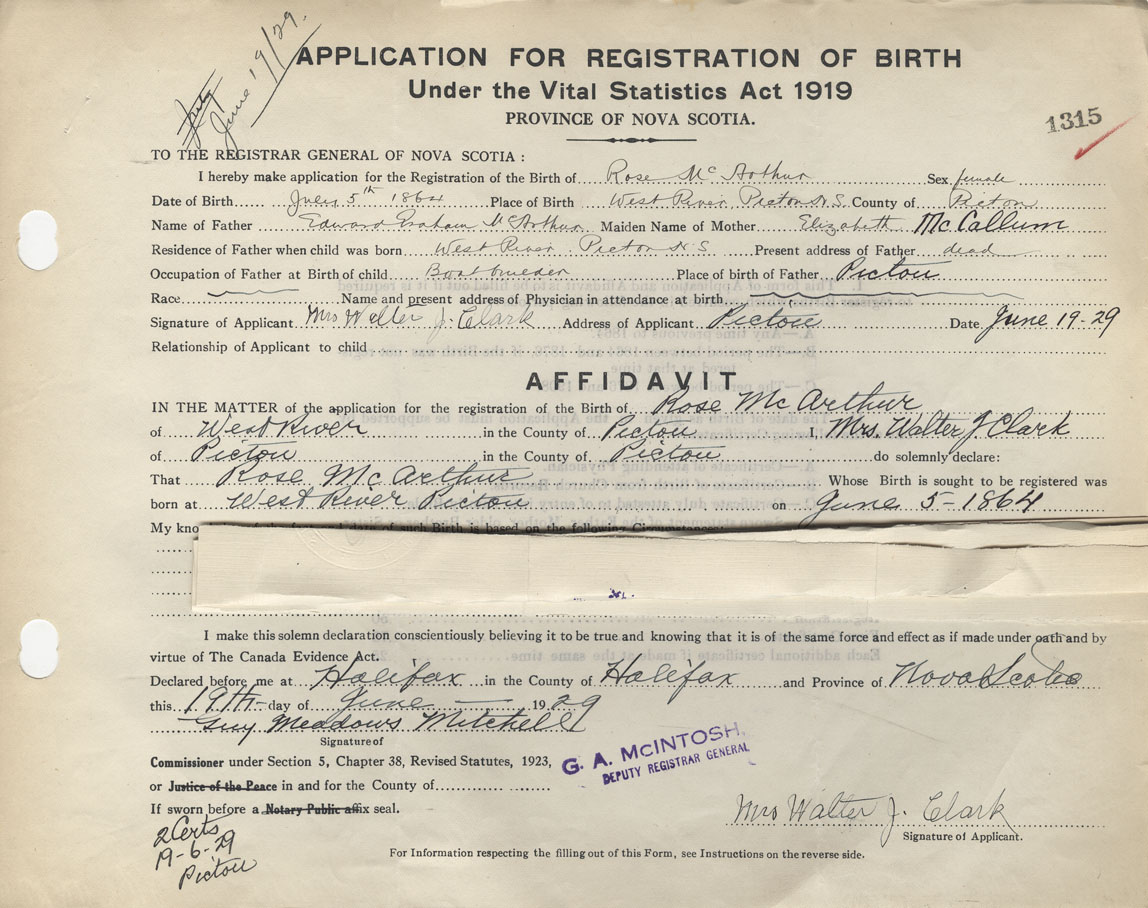 June 19/29.
APPLICATION FOR REGISTRATION OF BIRTH
Under the Vital Statistics Act 1919
PROVINCE OF NOVA SCOTIA.
1315
TO THE REGISTRAR GENERAL OF NOVA SCOTIA :
I hereby make application for the Registration of the Birth of Rose McArthur Sex female
Date of Birth July 5th 1864 Place of Birth West River, Pictou N.S. County of Pictou
Name of Father Edward Graham McArthur Maiden Name of Mother Elizabeth McCallum
Residence of Father when child was born West River Pictou N.S. Present address of Father dead
Occupation of Father at Birth of child Place of birth of Father Pictou
Race Name and present address of Physician in attendance at birth
Signature of Applicant Mrs Walter J. Clark Address of Applicant Pictou Date June 19-29
Relationship of Applicant to child
AFFIDAVIT
IN THE MATTER of the application for the registration of the Birth of Rose McArthur
of West River in the County of Pictou Mrs. Walter J Clark
of Pictou in the County of Pictou do solemnly declare:
That Rose McArthur Whose Birth is sought to be registered was
born at West River Pictou on June 5-1864
My kno of such Birth is based on the following Circumstances
I make this solemn declaration conscientiously believing it to be true and knowing that it is of the same force and effect as if made under oath and by
virtue of The Canada Evidence Act.
Declared before me at Halifax in the County of Halifax and Province of Nova Scotia
this 19th day of June 1929
Guy Meadows Mitchell
Signature of
Commissioner under Section 5, Chapter 38, Revised Statutes, 1923,
or Justice of the Peace in and for the County of
If sworn before a Notary Public affix seal.
G. A. McINTOSH.
DEPUTY REGISTRAR GENERAL
Mrs Walter J. Clark
Signature of Applicant.
2 Certs
19-6-29
Pictou
For Information respecting the filling out of this Form, see Instructions on the reverse side.